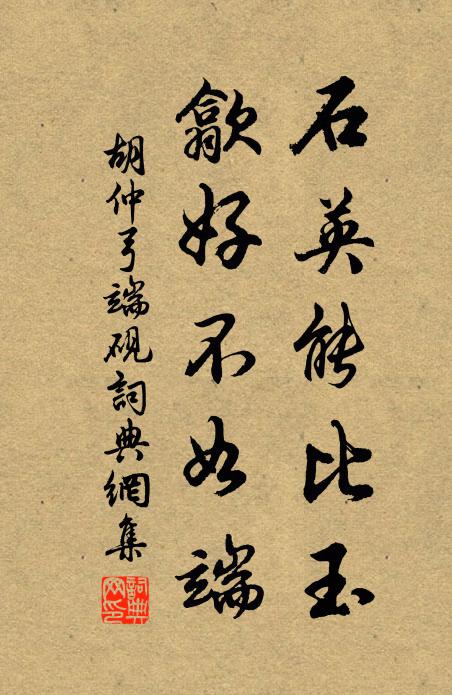 石英能比玉
歙好不如端
胡仲弓端硯詞典網集
詞典網印